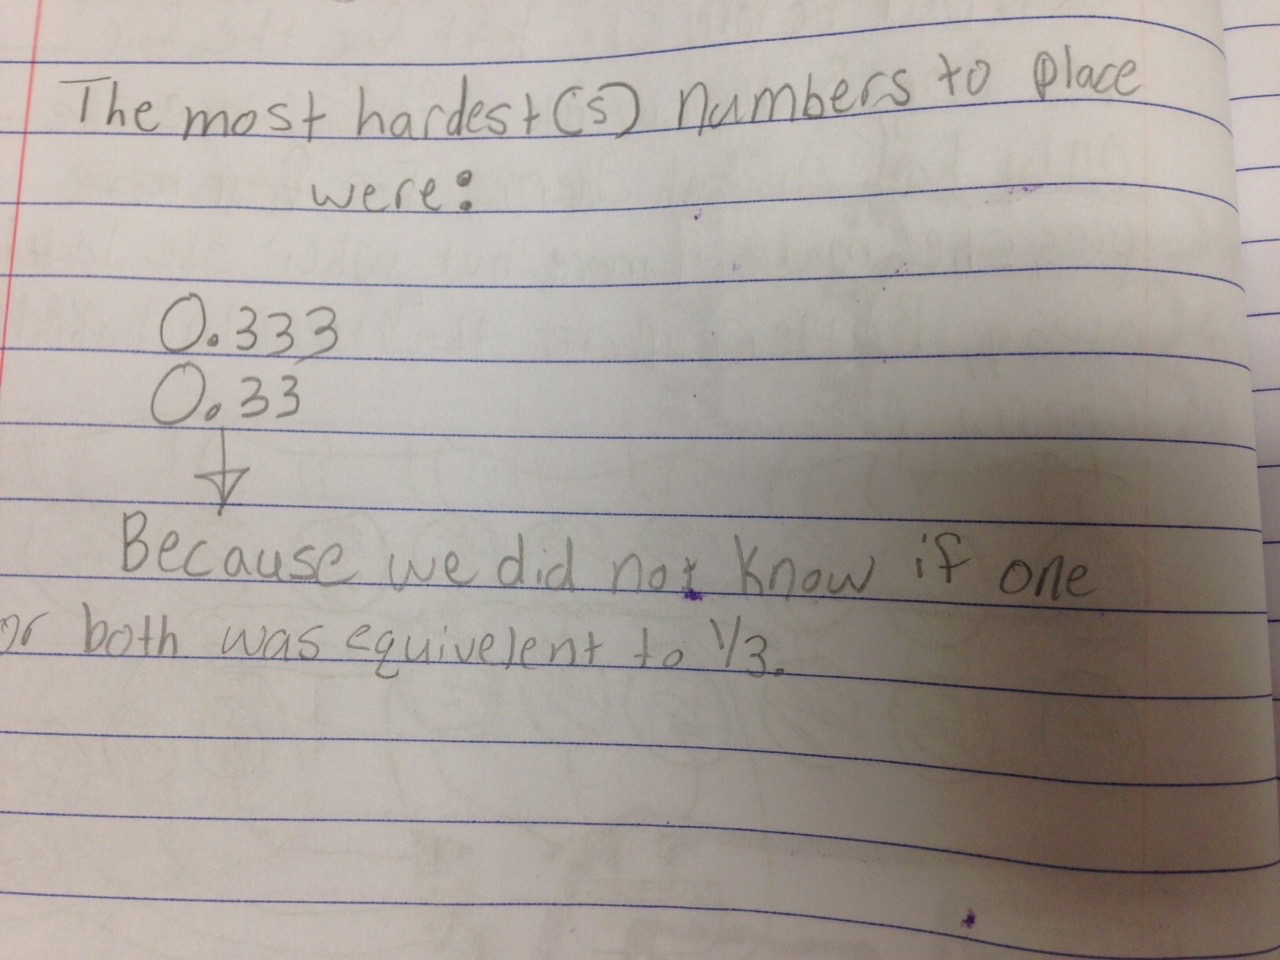 The most hardest(s) numbers to place
were:
0.333
0.33
Because we did not know if one
or both was equivelent to 1/3.